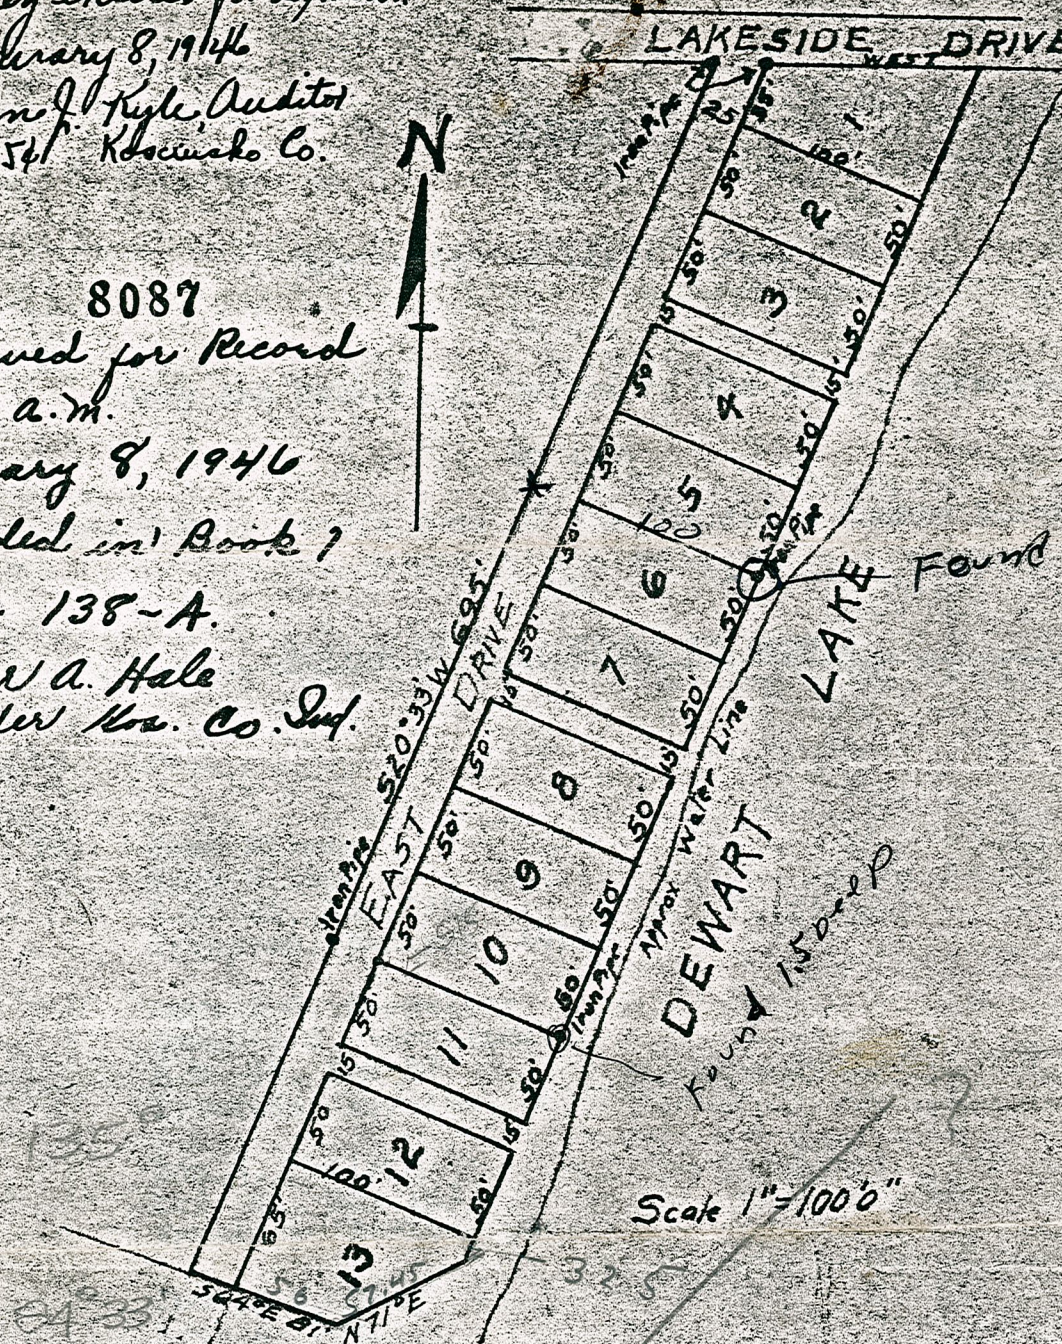 uary 8, 1946
Kyle, Auditor
Kosciusko Co.
8087
ved for Record
a.m.
ary 8, 1946
ded in Book 7
138-A.
A. Hale
der Kos. Co. Ind.
N
LAKESIDE WEST DRIVE
Iron Pipe
25
35
1
100'
50'
2
50'
50'
3
50'
15
15
50'
4
50'
50'
5
50'
100
Iron Pipe
Found
50'
6
50'
50'
7
50'
15
15
50'
8
50'
50'
9
50'
50'
10
50'
Iron Pipe
Found 1.5 Deep
50'
11
50'
15
15
50
12
50'
100'
65'
13
S20°33'W 695'
EAST DRIVE
Iron Pipe
Approx Water Line
DEWART LAKE
135°
?
Scale 1"=100'0"
325
56
37.45
S64°E 81'
N71°E
64°33'